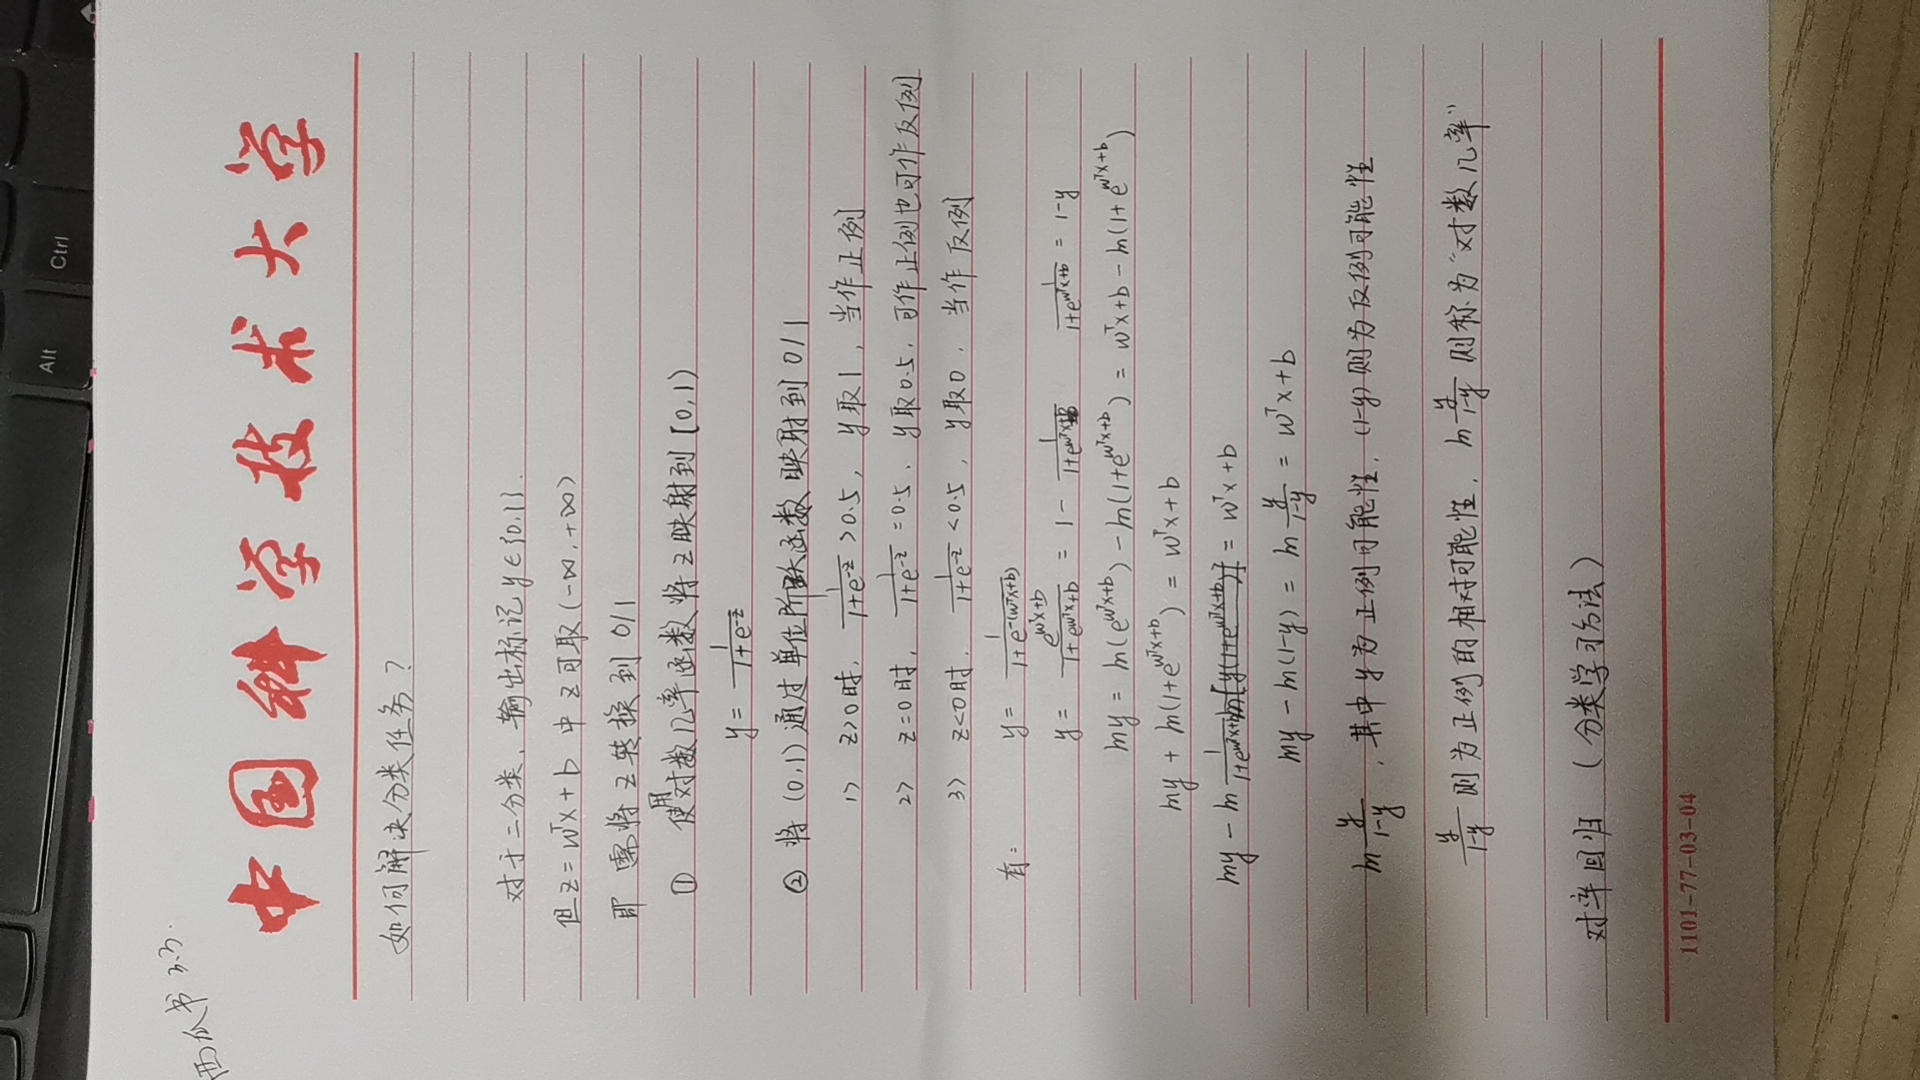 西瓜书 3.3.
中国科学技术大学
如何解决分类任务?
对于二分类、输出标记 y∈{0,1}.
但 z = wᵀx + b 中 z 可取 (-∞, +∞)
即 需将 z 转换到 0/1
① 使用对数几率函数将 z 映射到 [0,1)
y = 1/(1+e^(-z))
② 将 (0,1) 通过单位阶跃函数映射到 0/1
1> z>0时, 1/(1+e^(-z)) > 0.5, y取1, 当作正例
2> z=0时, 1/(1+e^(-z)) = 0.5, y取0.5, 可作正例也可作反例
3> z<0时, 1/(1+e^(-z)) < 0.5, y取0, 当作反例
有: y = 1/(1+e^(-(wᵀx+b)))
y = e^(wᵀx+b)/(1+e^(wᵀx+b)) = 1 - 1/(1+e^(wᵀx+b)) 1/(1+e^(wᵀx+b)) = 1-y
lny = ln(e^(wᵀx+b)) - ln(1+e^(wᵀx+b)) = wᵀx+b - ln(1+e^(wᵀx+b))
lny + ln(1+e^(wᵀx+b)) = wᵀx+b
lny - ln 1/(1+e^(wᵀx+b)) = wᵀx+b
lny - ln(1-y) = ln y/(1-y) = wᵀx+b
ln y/(1-y), 其中 y 为正例可能性, (1-y) 则为反例可能性
y/(1-y) 则为正例的相对可能性, ln y/(1-y) 则称为“对数几率”
对率回归 (分类学习方法)
1101-77-03-04
Ctrl
Alt